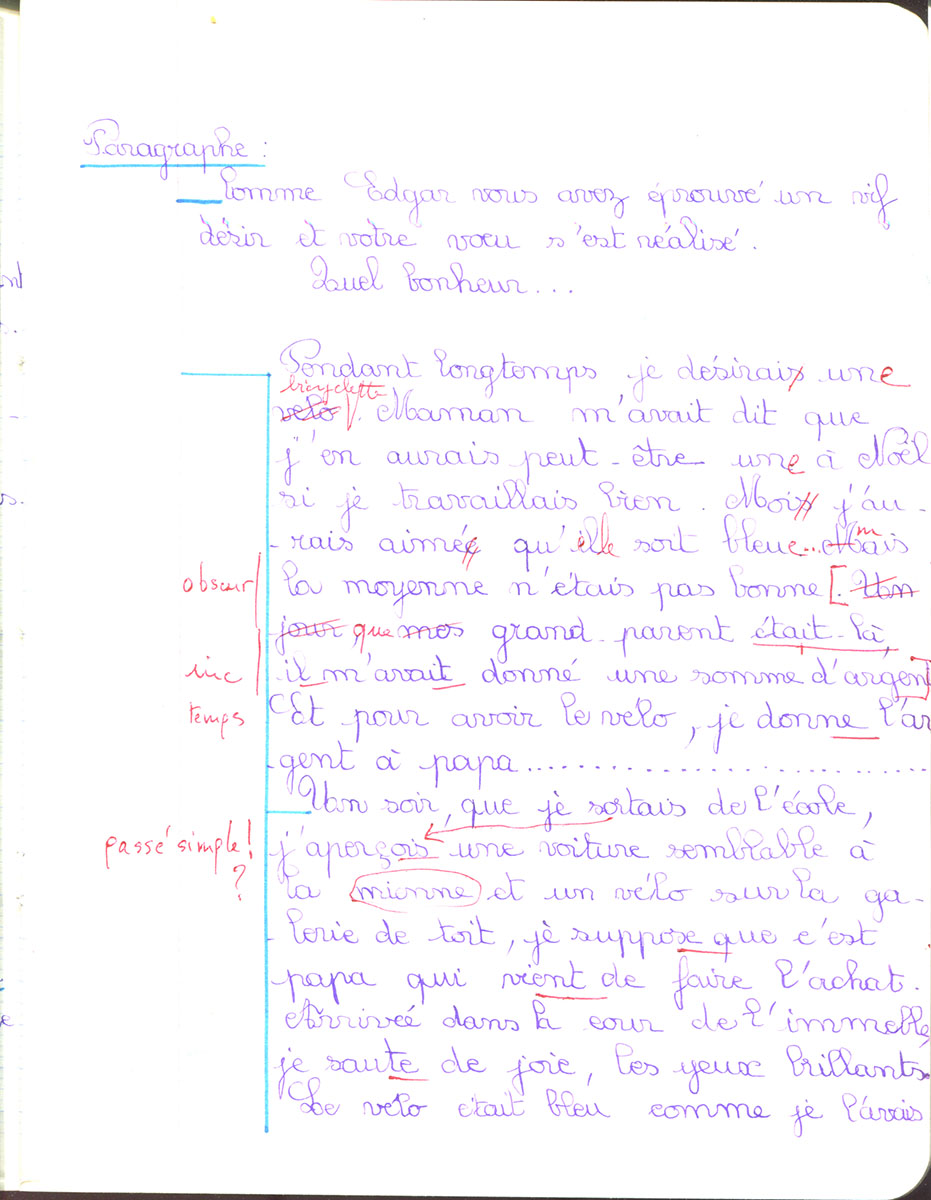 Paragraphe :
Comme Edgar vous avez éprouvé un vif
désir et votre voeu s'est réalisé.
Quel bonheur...
Pendant longtemps je désirais une
bicyclette
vélo. Maman m'avait dit que
j'en aurais peut-être une à Noël
si je travaillais bien. Moi, j'au-
rais aimé qu'elle soit bleue... mais
obscur la moyenne n'étais pas bonne [. Un
jour que mos grand-parent était-là,
inc il m'avait donné une somme d'argent]
temps Et pour avoir le vélo, je donne l'ar
gent à papa..............................
Un soir, que je sortais de l'école,
passé simple! j'aperçois une voiture semblable à
? la mienne et un vélo sur la ga-
lerie de toit, je suppose que c'est
papa qui vient de faire l'achat.
Arriveé dans la cour de l'immeble,
je saute de joie, les yeux brillants.
Le velo etait bleu comme je l'avais
nt
s.
e